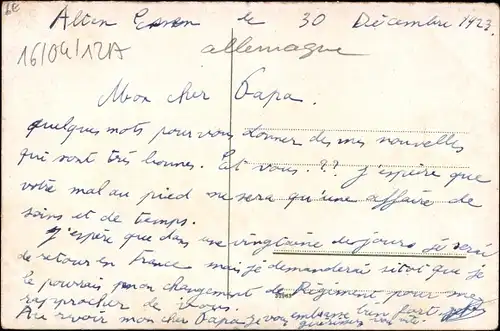 Alten Essen le 30 Décembre 1923.
16/04/12A
allemagne
Mon cher Papa.
quelques mots pour vous donner des mes nouvelles
qui sont très bonnes. Et vous ?? j'espère que
votre mal au pied ne sera qu'une affaire de
soins et de temps.
j'espère que dans une vingtaine de jours je serai
de retour en France mais je demanderai sitot que je
le pourrais mon changement de Régiment pour me
rapprocher de vous.
Au revoir mon cher Papa je vous embrasse bien fort
guérissez vite